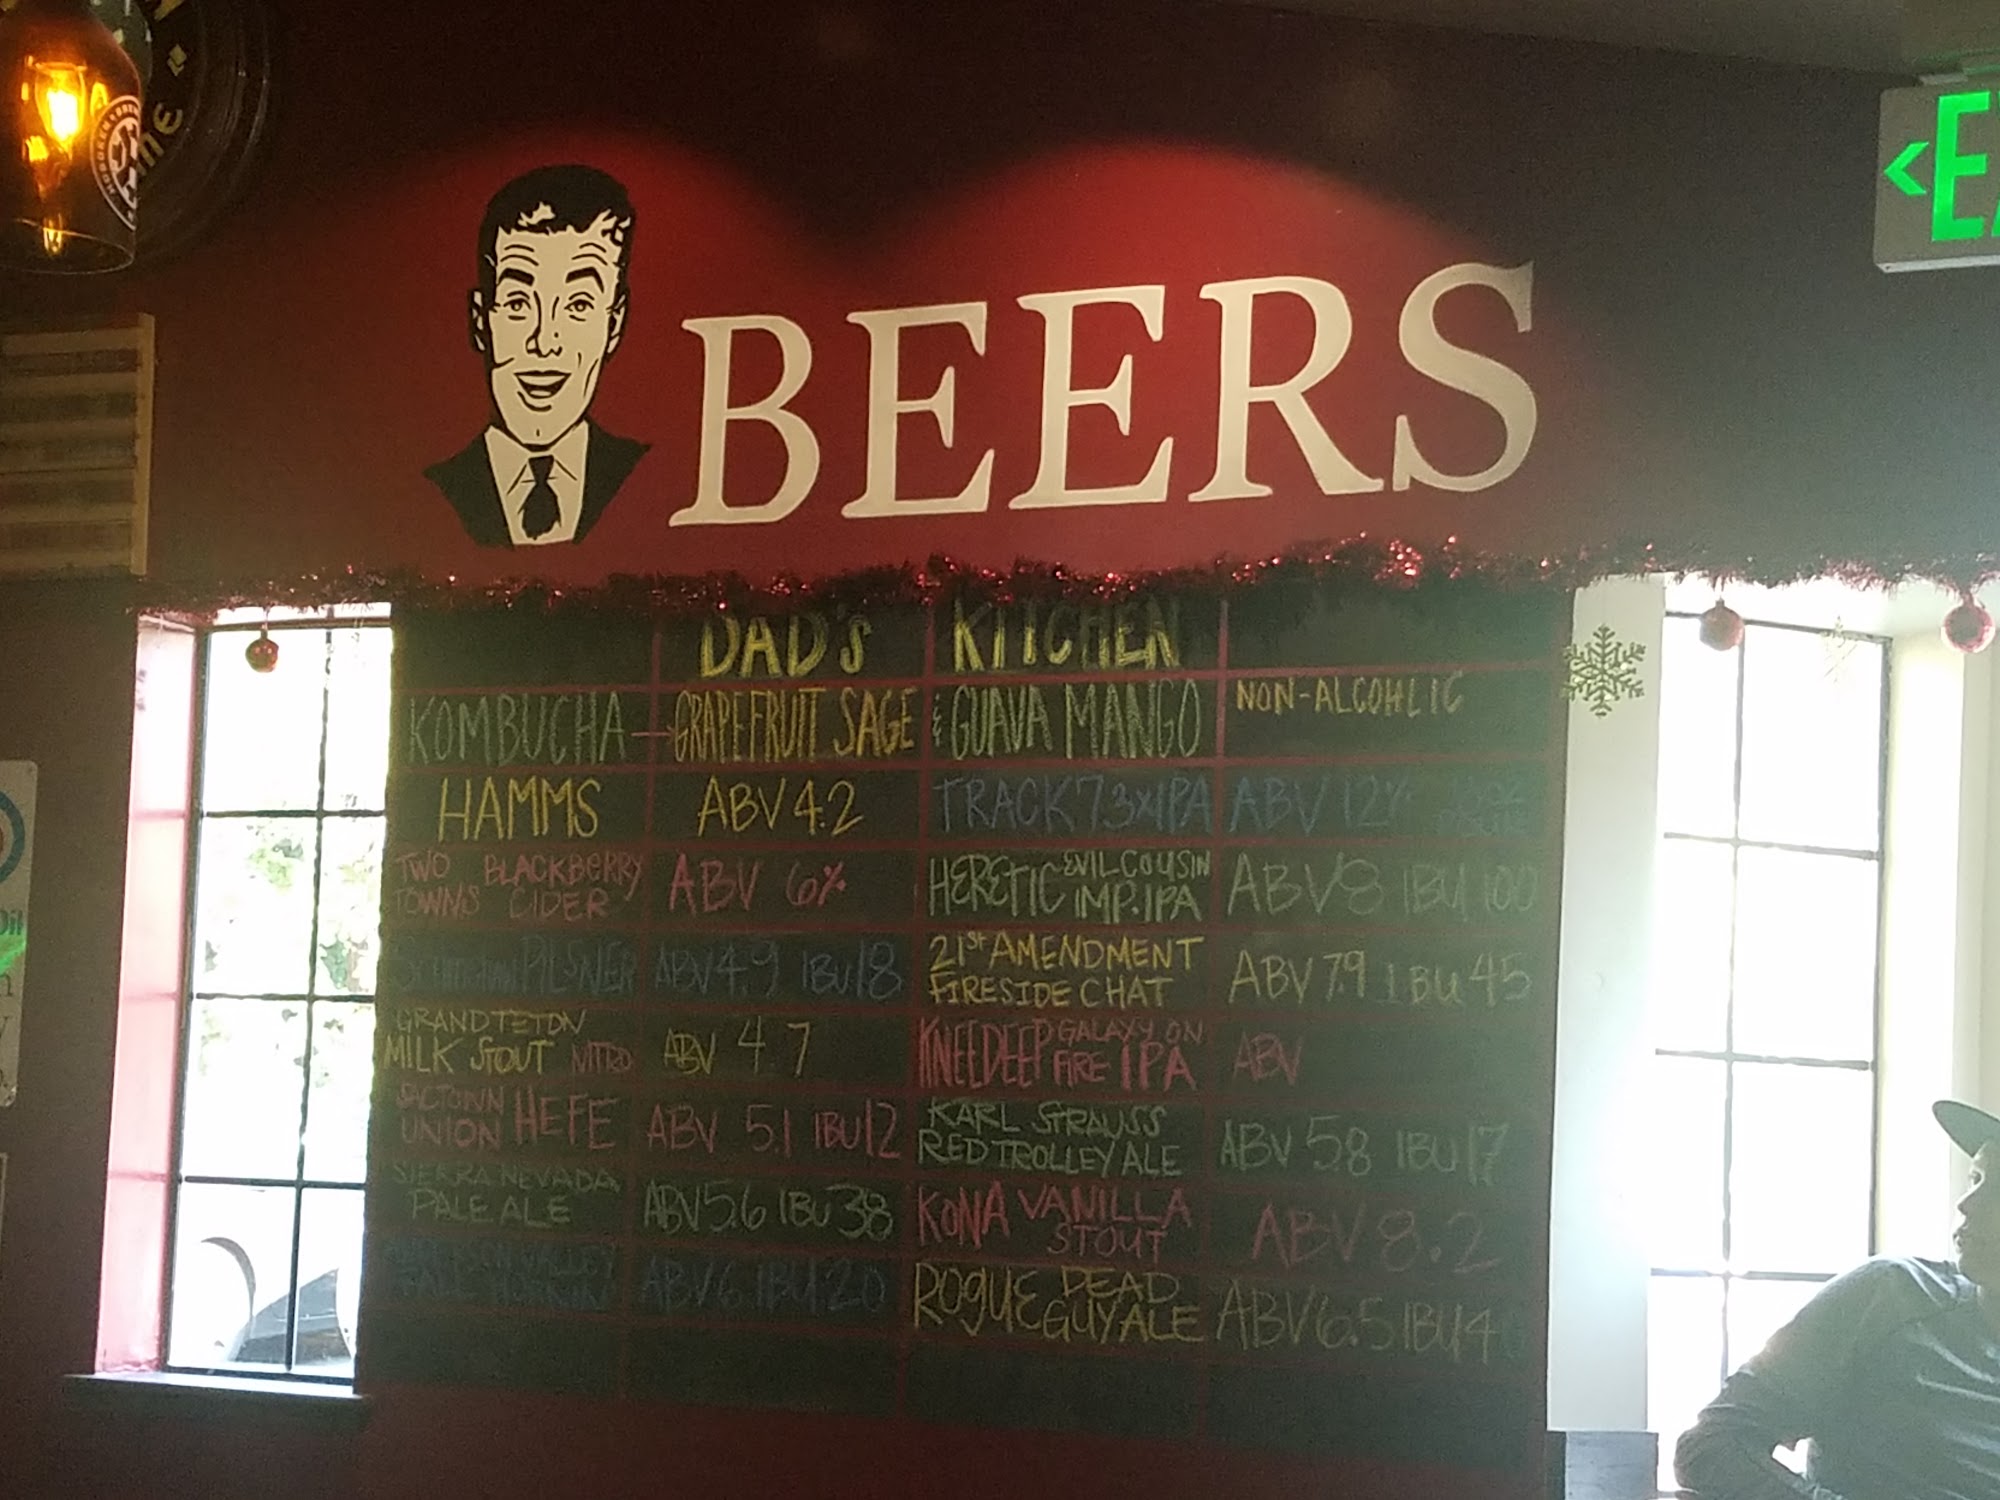 <E
BEERS
DAD'S KITCHEN
KOMBUCHA → GRAPEFRUIT SAGE & GUAVA MANGO NON-ALCOHLIC
HAMMS ABV 4.2
TRACK 7 3xIPA ABV 12%
TWO TOWNS BLACKBERRY CIDER ABV 6%
HERETIC EVIL COUSIN IMP. IPA ABV 8 IBU 100
PILSNER ABV 4.9 IBU 18
21st AMENDMENT FIRESIDE CHAT ABV 7.9 IBU 45
GRAND TETON MILK STOUT NITRO ABV 4.7
KNEEDEEP GALAXY ON FIRE IPA ABV
SACTOWN UNION HEFE ABV 5.1 IBU 12
KARL STRAUSS RED TROLLEY ALE ABV 5.8 IBU 17
SIERRA NEVADA PALE ALE ABV 5.6 IBU 38
KONA VANILLA STOUT ABV 8.2
ABV 6. IBU 20
ROGUE DEAD GUY ALE ABV 6.5 IBU 4